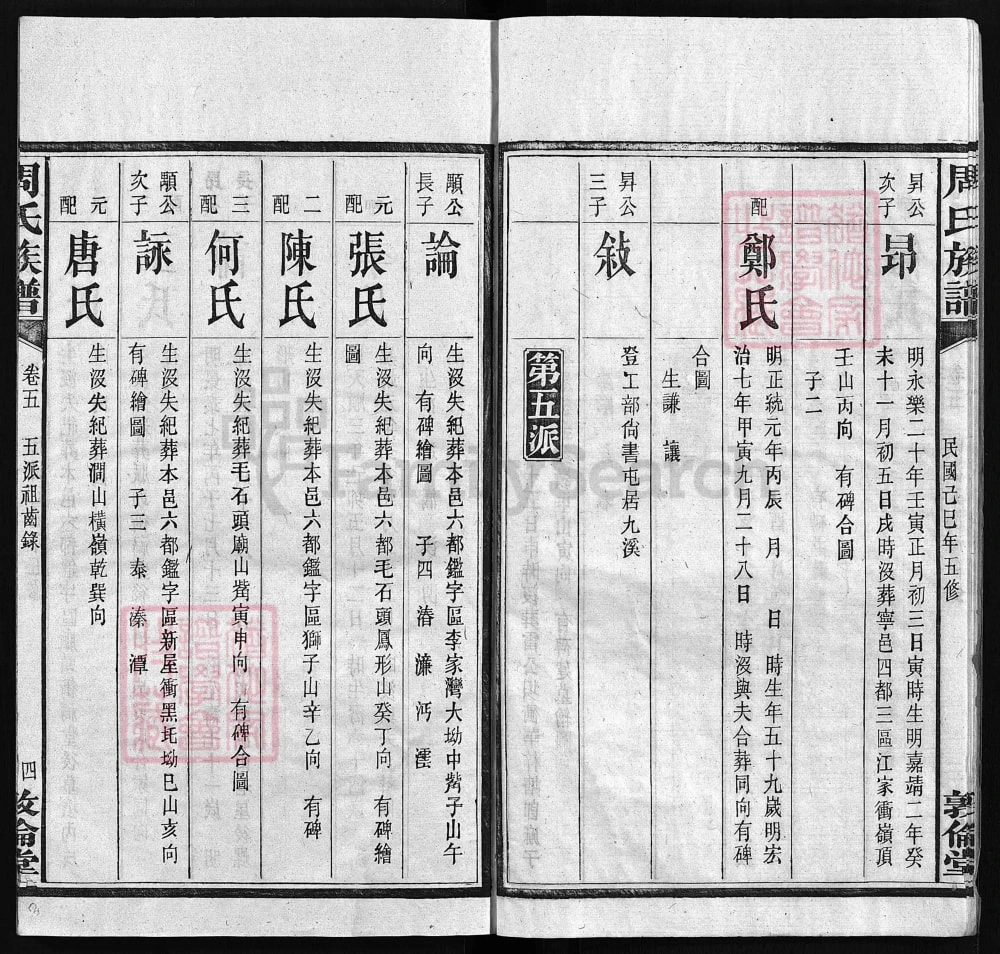 周氏族譜
民國己巳年五修
敦倫堂
昇公
次子
昂
明永樂二十年壬寅正月初三日寅時生明嘉靖二年癸
未十一月初五日戌時沒葬寧邑四都三區江家衝嶺頂
壬山丙向 有碑合圖
子二
配
鄭氏
明正統元年丙辰 月 日 時生年五十九歲明宏
治七年甲寅九月二十八日 時沒與夫合葬同向有碑
合圖
生謙 讓
昇公
三子
敍
登工部尙書屯居九溪
第五派
顒公
長子
論
生沒失紀葬本邑六都鑑字區李家灣大坳中觜子山午
向 有碑繪圖 子四 濂 沔
元
配
張氏
生沒失紀葬本邑六都毛石頭鳳形山癸丁向 有碑繪
圖
二
配
陳氏
生沒失紀葬本邑六都鑑字區獅子山辛乙向 有碑
三
配
何氏
生沒失紀葬毛石頭廟山觜寅申向 有碑合圖
顒公
次子
詠
生沒失紀葬本邑六都鑑字區新屋衝黑坳巳山亥向
有碑繪圖 子三 泰 溱 潭
元
配
唐氏
生沒失紀葬澗山橫嶺乾巽向
周氏族譜
卷五 五派祖齒錄
四
敦倫堂
FamilySearch